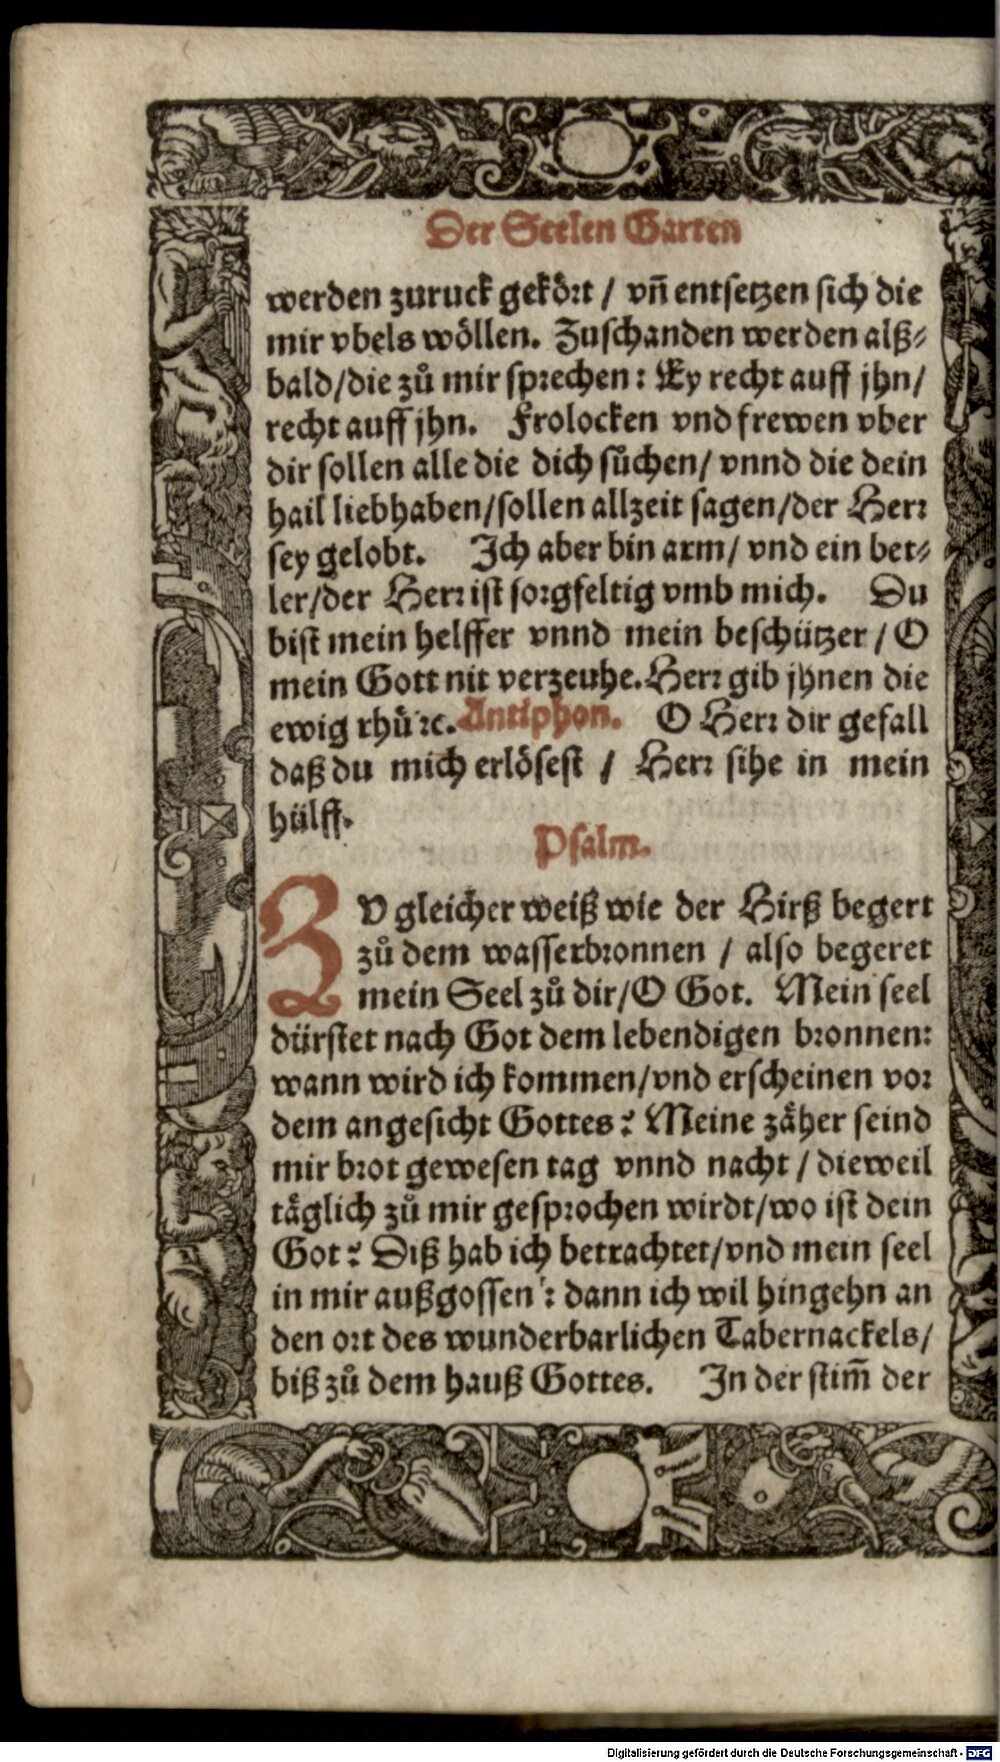 Der Seelen Garten
werden zuruck gekoͤrt / vñ entsetzen sich die
mir vbels woͤllen. Zuschanden werden alß⸗
bald/die zů mir sprechen: Ey recht auff jhn/
recht auff jhn. Frolocken vnd frewen vber
dir sollen alle die dich sůchen/ vnnd die dein
hail liebhaben/sollen allzeit sagen/der Herr
sey gelobt. Ich aber bin arm/ vnd ein bet⸗
ler/der Herr ist sorgfeltig vmb mich. Du
bist mein helffer vnnd mein beschützer / O
mein Gott nit verzeuhe. Herr gib jhnen die
ewig rhů ꝛc. Antiphon. O Herr dir gefall
daß du mich erloͤsest / Herr sihe in mein
hülff.
Psalm.
ZV gleicher weiß wie der Hirß begert
zů dem wasserbronnen / also begeret
mein Seel zů dir/O Got. Mein seel
dürstet nach Got dem lebendigen bronnen:
wann wird ich kommen/vnd erscheinen vor
dem angesicht Gottes? Meine zaͤher seind
mir brot gewesen tag vnnd nacht / dieweil
taͤglich zů mir gesprochen wirdt/wo ist dein
Got? Diß hab ich betrachtet/vnd mein seel
in mir außgossen: dann ich wil hingehn an
den ort des wunderbarlichen Tabernackels/
biß zů dem hauß Gottes. In der stim̃ der
Digitalisierung gefördert durch die Deutsche Forschungsgemeinschaft - DFG